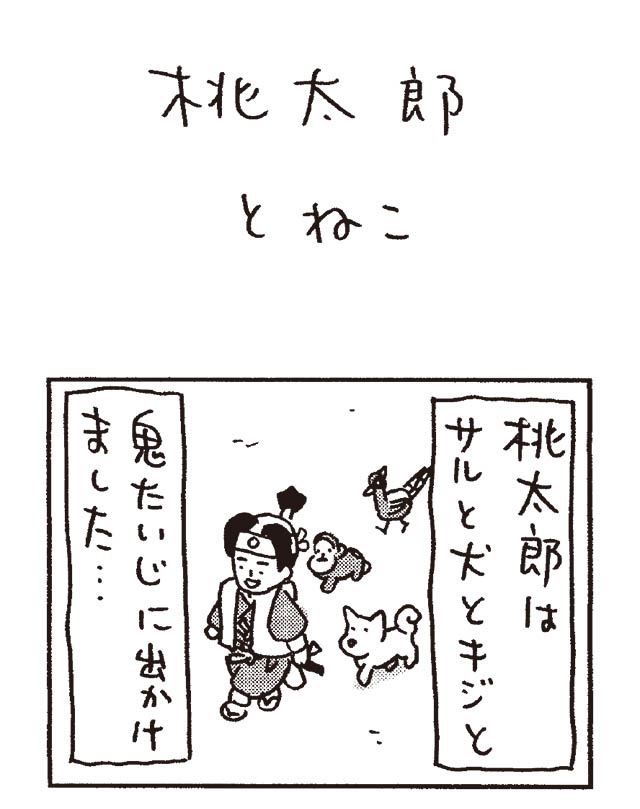 桃太郎
とねこ
桃太郎は
サルと犬とキジと
鬼たいじに出かけ
ました…